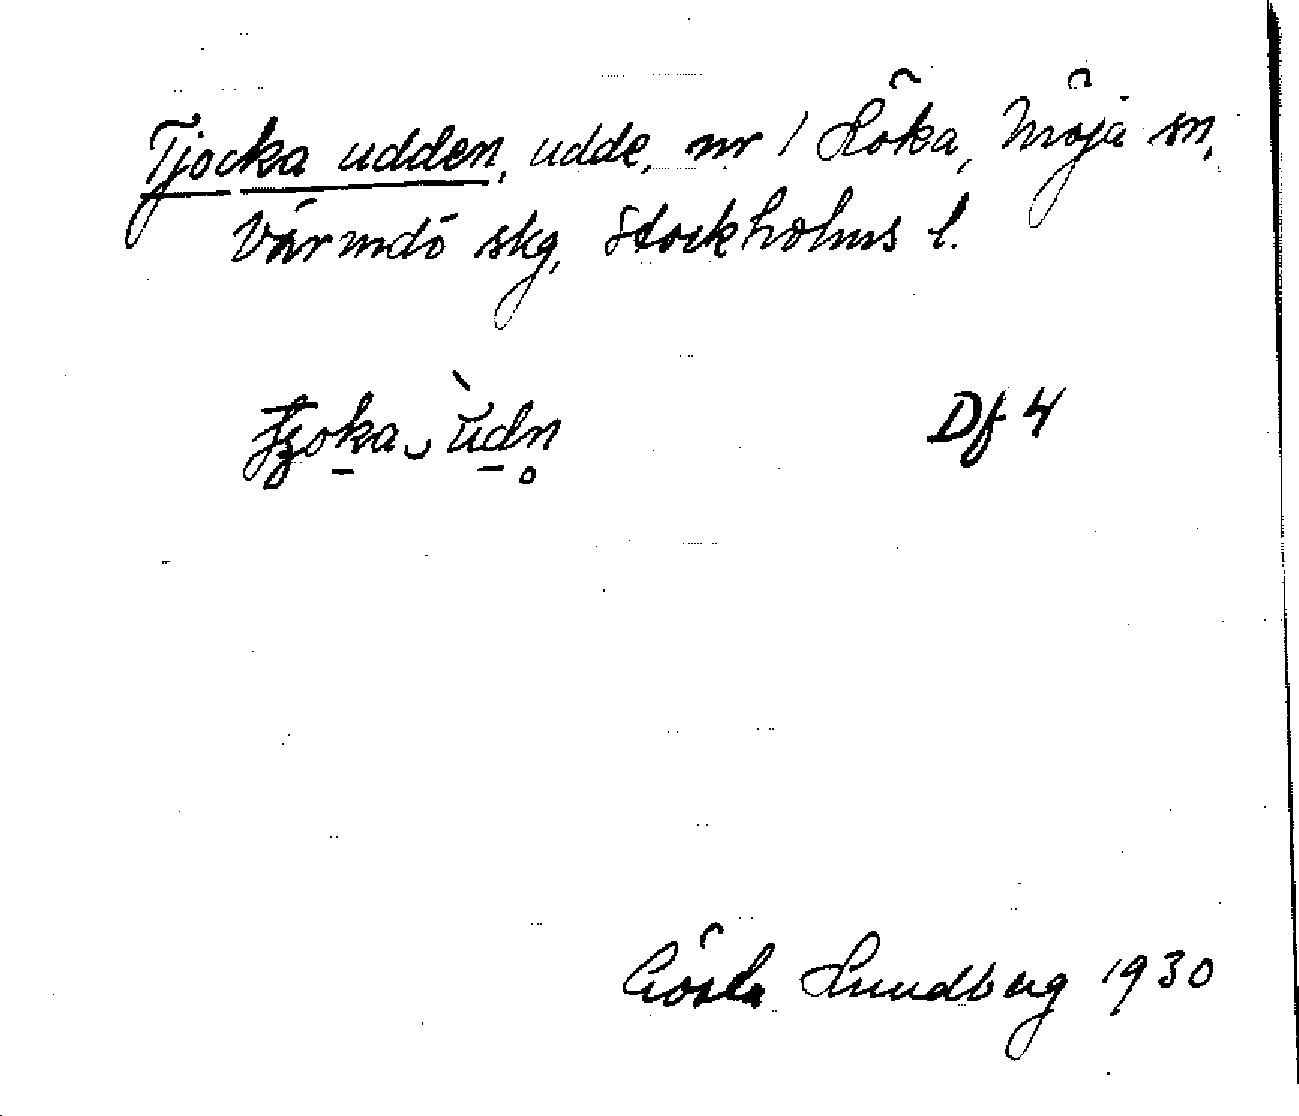 Tjocka udden, udde, nr 1 Löka, Möja sn,
Värmdö skg, Stockholms l.
Df 4
Gösta Lundberg 1930